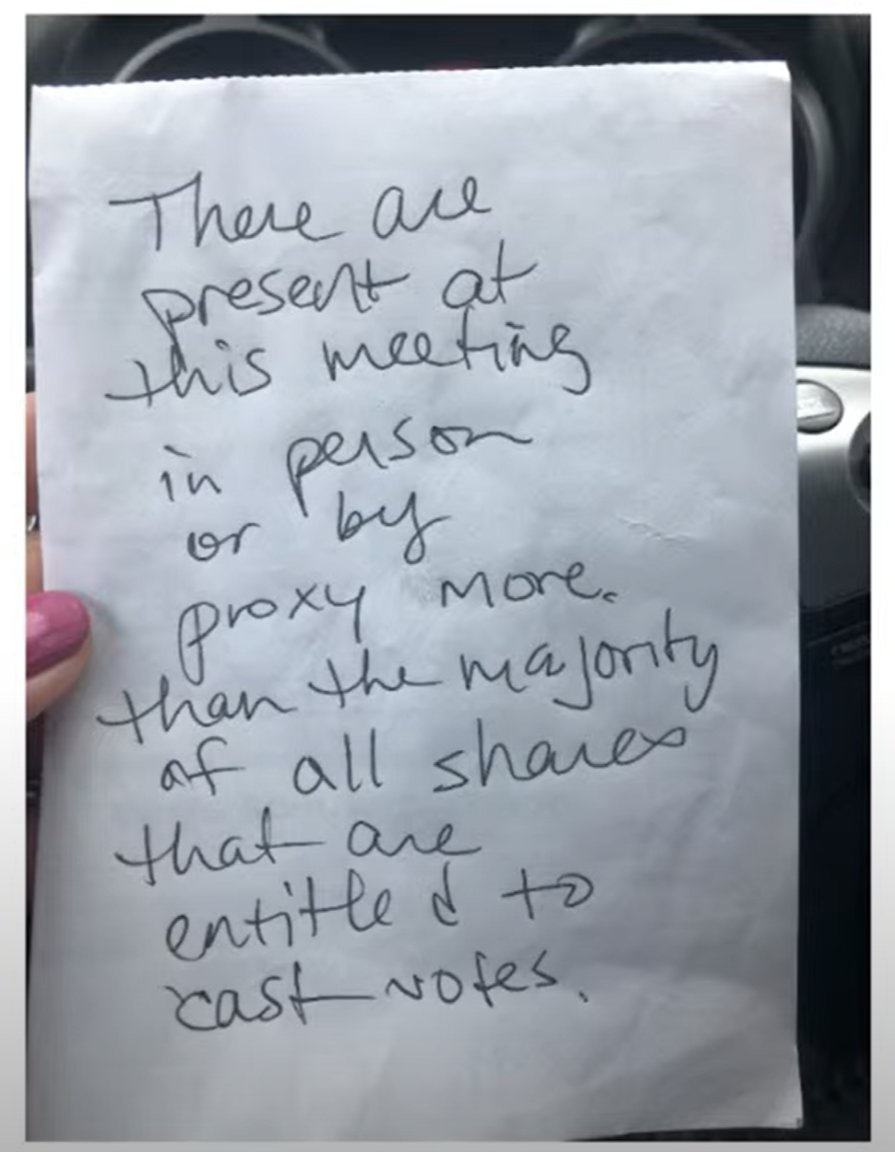 There are
present at
this meeting
in person
or by
proxy more.
than the majority
of all shares
that are
entitled to
cast votes.